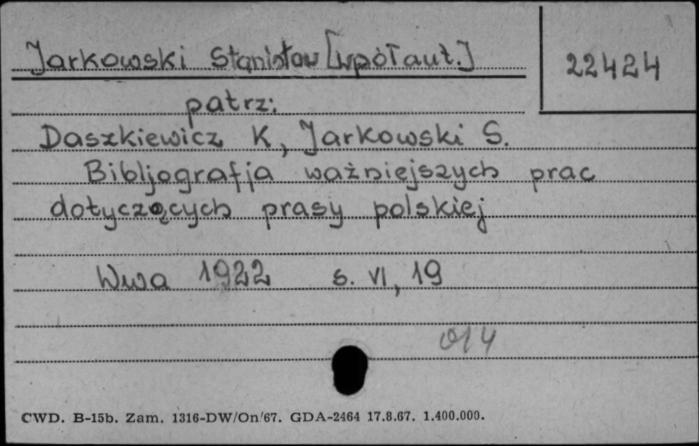 Jarkowski Stanisław [wpółaut.]
22424
patrz:
Daszkiewicz K, Jarkowski S.
Bibljografja ważniejszych prac
dotyczących prasy polskiej
Wwa 1922 s. VI, 19
014
CWD. B-15b. Zam. 1316-DW/On/67. GDA-2464 17.8.67. 1.400.000.